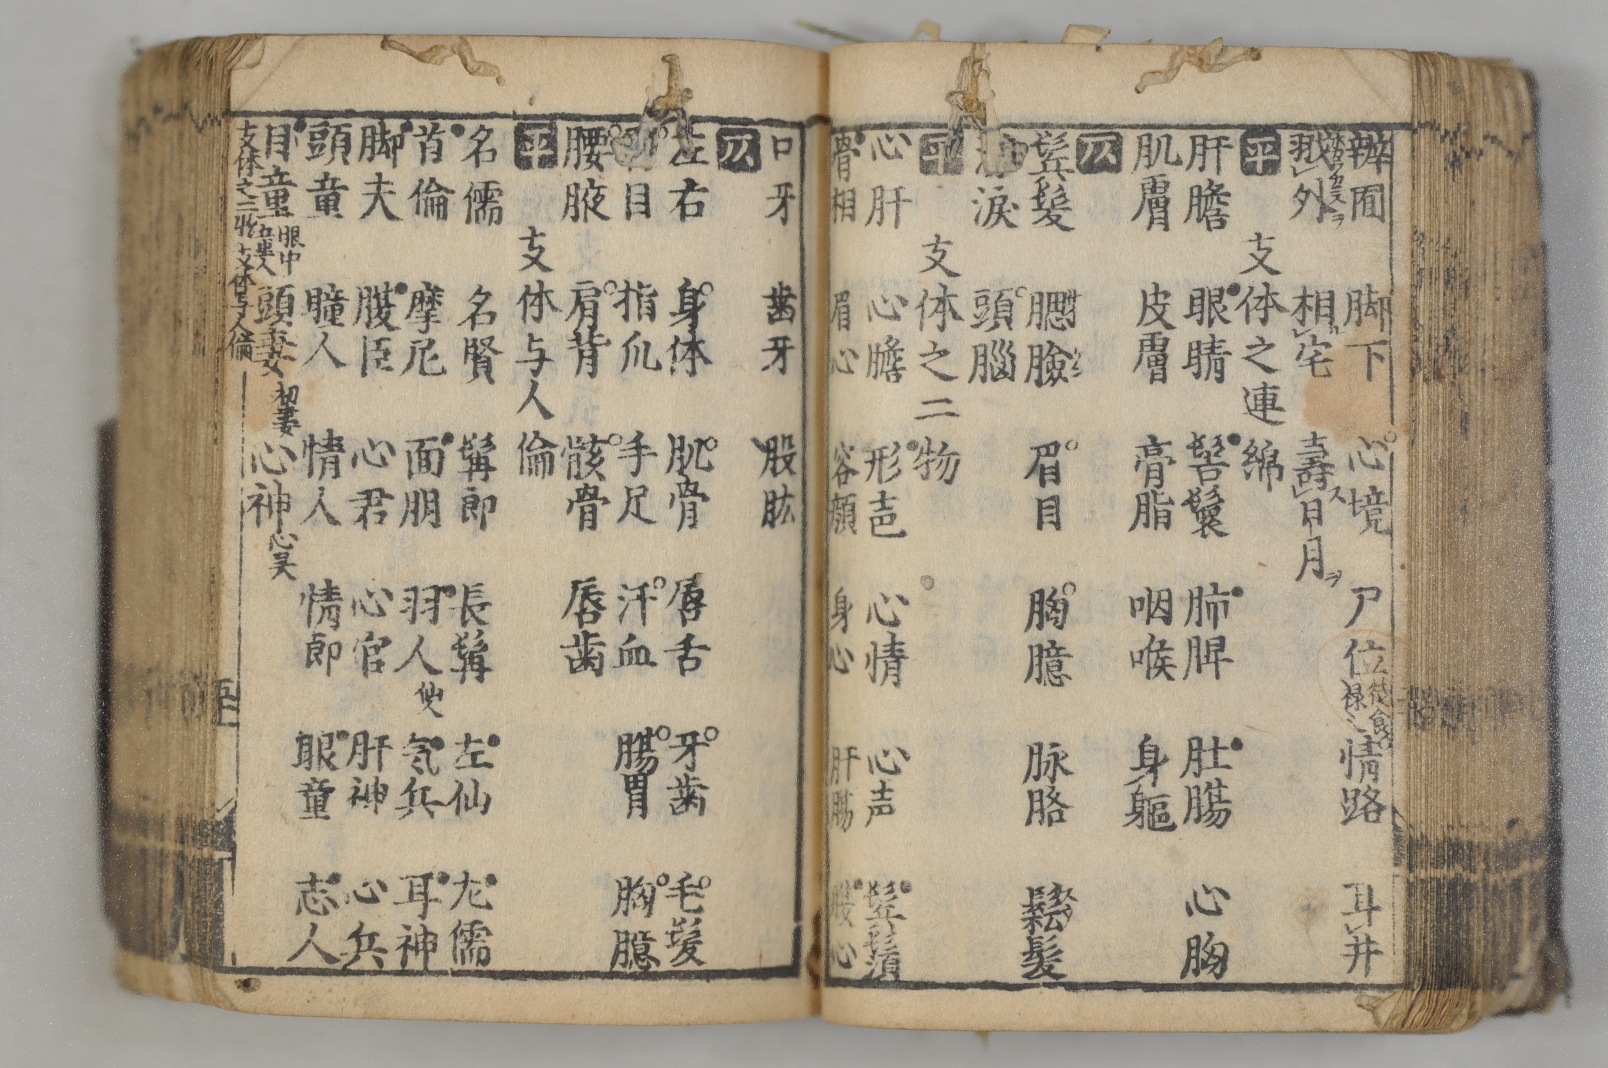 辧囿 脚下 心境 尸位 徒食 禄也 情路 耳井
外 相宅 壽 日月
平 支体之連綿
肝膽 眼睛 髻鬟 肺脾 肚腸 心胸
肌膚 皮膚 膏脂 咽喉 身軀
仄
鬂髮 腮臉 眉目 胸臆 脉胳 鬆髮
淚 頭腦
平 支体之二物
心肝 心膽 形声 心情 心声 鬂鬚
骨相 眉心 容顔 身心 肝腸 股心
口牙 歯牙 股肱
仄
左右 身体 肌骨 唇舌 牙歯 毛髮
目 指爪 手足 汗血 腸胃 胸臆
腰腋 肩背 骸骨 唇歯
平 支体与人倫
名儒 名賢 髯郎 長髯 左仙 尨儒
首倫 摩尼 面朋 羽人 気兵 耳神
脚夫 腹臣 心君 心官 肝神 心兵
頭童 瞳人 情人 情郎 眼童 志人
目童 眼中 頭妻 初妻 心神
支体之二物 支体与人倫